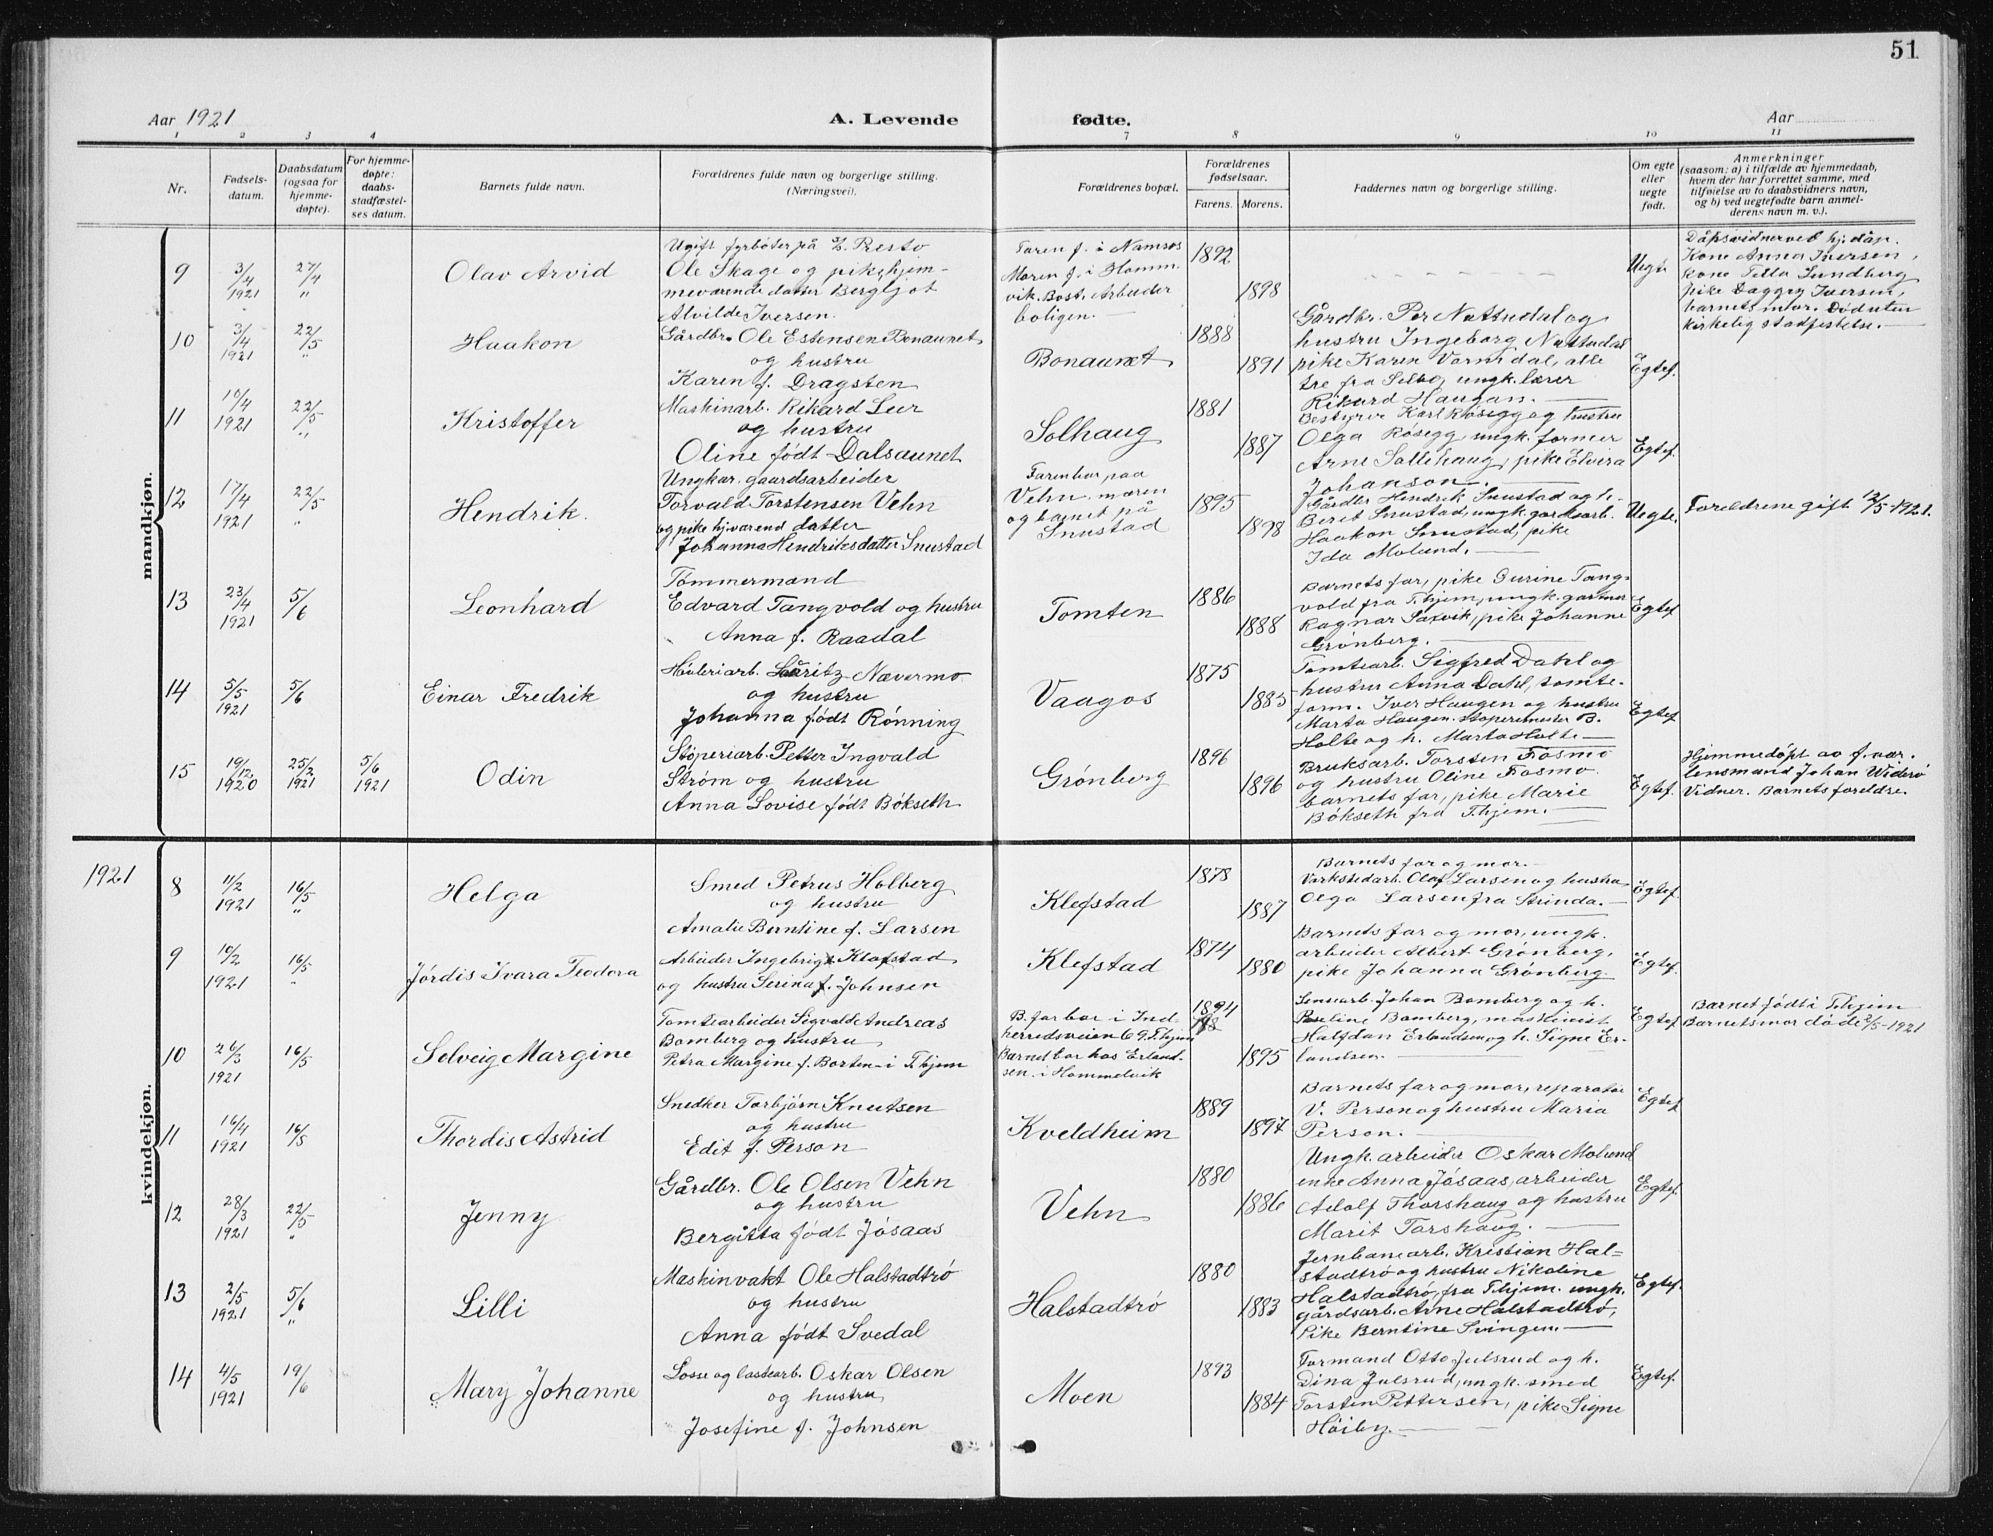 51
Aar 1921
A. Levende
fødte.
Aar
1 2 3 4 7 8 9 10 11
Nr.
Fødsels-
datum.
Daabsdatum
(ogsaa for
hjemme-
døpte).
For hjemme-
døpte:
daabs-
stadfæstel-
ses datum.
Barnets fulde navn.
Forældrenes fulde navn og borgerlige stilling.
(Næringsvei).
Forældrenes bopæl.
Forældrenes
fødselsaar.
Farens. Morens.
Faddernes navn og borgerlige stilling.
Om egte
eller
uegte
født.
Anmerkninger
(saasom: a) i tilfælde av hjemmedaab,
hvem der har forrettet samme, med
tilføielse av to daabsvidners navn,
og b) ved uegtefødte barn anmel-
derens navn m. v.).
mandkjøn.
9
3/4
1921
27/4
"
Olav Arvid
Ugift fyrbøter på
Ole Skage og pike, hjem-
meværende datter Bergljot
Alvilde Iversen.
Faren f. i Namsos
Moren f. i Homm.
vik. Bost. Arbeider
boligen. —
1892
1898
Uegte
Dåpsvidner ved hj.dåp.
Kone Anna Iversen,
kone Tella Sundberg
pike Dagny Iversen,
barnets mor. Død uten
kirkelig stadfestelse. —
10
3/4
1921
22/5
"
Haakon
Gårdbr. Ole Estensen Bonaunet
og hustru
Karen f. Dragsten
Bonaunet
1888
1891
Gårdbr. Per Næsudal og
hustru Ingeborg
pike Karen Vormdal, alle
tre fra Selbo, ungk. lærer
Rikard Haugan. —
Egtef.
11
10/4
1921
22/5
"
Kristoffer
Maskinarb. Rikard Leer
og hustru
Oline født Dalsaunet
Solhaug
1881
1887
Bestyrer Karl Rosegg og hustru
Olga Rosegg, ungk. former
Arne Sollihaug, pike Elvira
Johanson. —
Egtef.
12
17/4
1921
22/5
"
Hendrik.
Ungkar. gaardsarbeider
Torvald Torstensen Vehn
og pike hjvärend datter
Johanna Hendriksdatter Snustad
Faren bor paa
Vehn, moren
og barnet på
Snustad
1895
1898
Gårdbr Hendrik Snustad og h.
Beret Snustad, ungk. gårdsarb.
Haakon Snustad, pike
Ida Molund. —
Uegte.
Foreldrene gift 12/5-1921.
13
23/4
1921
5/6
Leonhard
Tømmermand
Edvard Tangvold og hustru
Anna f. Raadal
Tomten
1886
1888
Barnets far, pike Gurine Tang-
vold fra Thjem, ungk.
Ragnar Saxvik, pike Johanne
Grønberg. —
Egtef.
14
5/5
1921
5/6
Einar Fredrik
Høvleriarb. Lauritz Nævermo
og hustru
Johanna født Rønning
Vaagos
1875
1885
Tomtearb. Sigfred Dahl og
hustru Anna Dahl, tomte-
form. Iver Haugen og hustru
Marta Haugen. Støperimester B.
Holte og h. Marta Holte —
Egtef.
15
19/12
1920
25/2
1921
5/6
1921
Odin
Støperiarb. Petter Ingvald
Strøm og hustru
Anna Lovise født Bökseth
Grønberg
1896
1896
Bruksarb. Torsten Fosmo
og hustru Oline Fosmo.
barnets far, pike Marie
Bökseth fra Thjem. —
Egtef.
Hjemmedøpt av f.vær.
lensmand Johan Widerö
Vidner. Barnets foreldre.
1921
kvindekjøn.
8
11/2
1921
16/5
"
Helga
Smed Petrus Holberg
og hustru
Amalie Berntine f. Larsen
Klefstad
1878
1887
Barnets far og mor. —
Verkstedarb. Olaf Larsen og hustru
Olga Larsen fra Strinda. —
Egtef.
9
10/2
1921
16/5
"
Jórdis Ivara Teodora
Arbeider Ingebrigt Klefstad
og hustru Serina f. Johnsen
Klefstad
1874
1880
Barnets far og mor, ungk.
arbeider Albert Grønberg,
pike Johanna Grønberg.
Egtef.
10
26/3
1921
16/5
Solveig Margine
Tomtearbeider Sigvald Andreas
Bomberg og hustru
Petra Margine f. Borten i Thjem
B. far bor i Ind-
herredsveien 69, Thjem
Barnet bor hos Erland-
sen i Hommelvik
1894
1895
Lensearb. Johan Bomberg og h.
Roseline Bomberg, maskinist
Halfdan Erlandsen og h. Signe Er-
landsen. —
Egtef.
Barnet født i Thjem
Barnets mor døde 2/5-1921
11
16/4
1921
16/5
Thordis Astrid
Snedker Torbjörn Knutsen
og hustru
Edit f. Person
Kveldheim
1889
1897
Barnets far og mor, reparatør
V. Person og hustru Maria
Person. —
Egtef.
12
28/3
1921
22/5
"
Jenny
Gårdbr. Ole Olsen Vehn
og hustru
Bergitta født Jøsaas
Vehn
1880
1886
Ungk. arbeider Oskar Molund
enke Anna Jøsaas, arbeider
Adolf Thorshaug og hustru
Marit Torshaug. —
Egtef.
13
2/5
1921
5/6
"
Lilli
Maskinvakt Ole Halstadtrö
og hustru
Anna født Svedal
Halstadtrö
1880
1883
Jernbanearb. Kristian Hal-
stadtrö og hustru Nikoline
Halstadtrö, fra Thjem. ungk.
gårdsarb. Arne Halstadtrö,
Pike Berntine Svingen. —
Egtef.
14
4/5
1921
19/6
Mary Johanne
Losse og lastearb. Oskar Olsen
og hustru
Josefine f. Johnsen
Moen
1893
1884
Formand Otto Julsrud og h.
Dina Julsrud, ungk. smed
Torsten Pettersen, pike Signe
Höiby. —
Egtef.